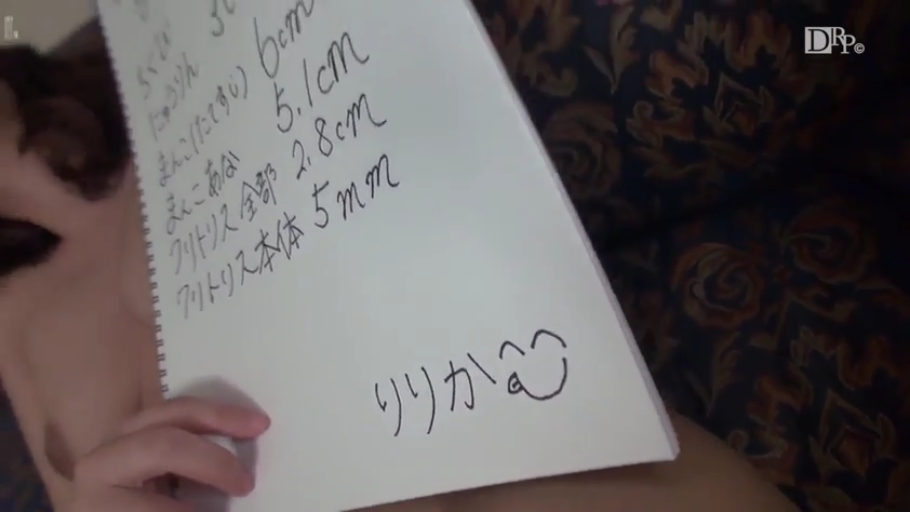 DRP©
ちくび 3c
にゅうりん
まんこ(たてすじ) 6cm
まんこあな 5.1cm
クリトリス全部 2.8cm
クリトリス本体 5mm
りりか